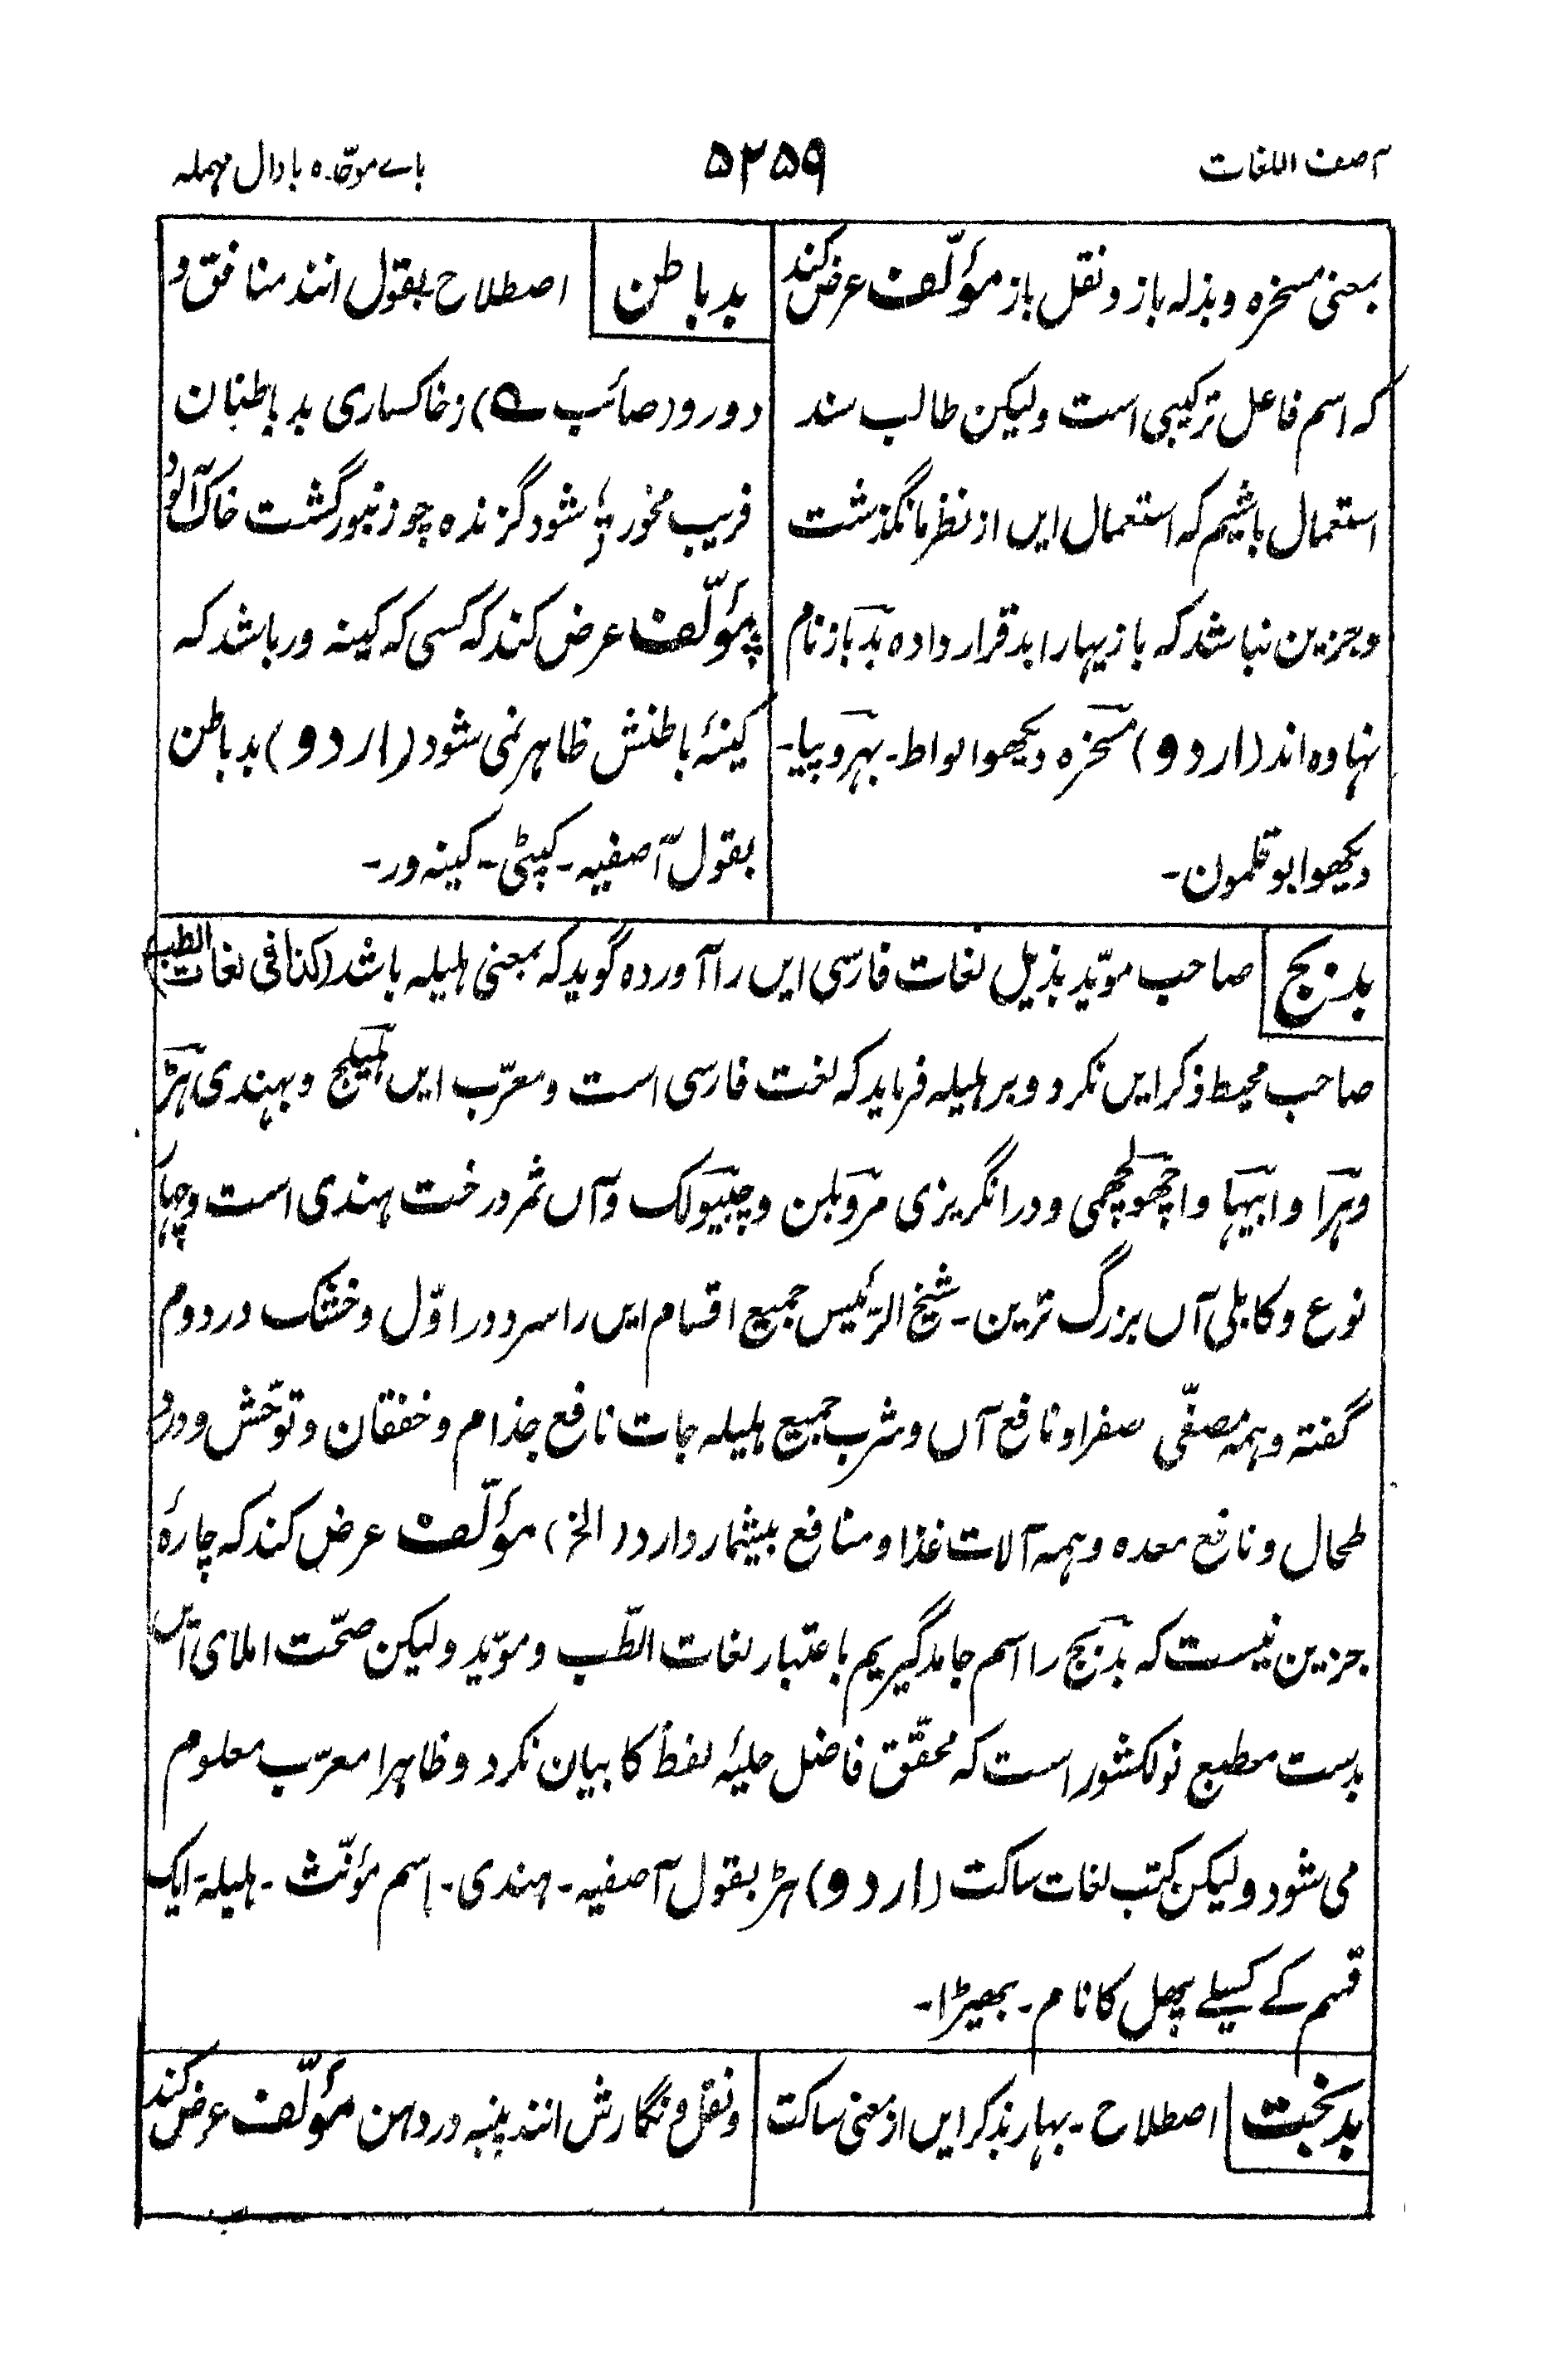 آصف اللغات
۵۲۵۹
بائے موحّدہ با دال مہملہ
بمعنی مسخرہ و بذلہ باز و نقل باز مؤلّف عرض کند
کہ اسم فاعل ترکیبی است ولیکن طالب سند
استعمال باشیم کہ استعمال ایں از نظر ما نگذشت
و جزین نباشد کہ بازیہا را بد قرار دادہ بدباز نام
نہادہ اند (اردو) مسخرہ دیکھو الواط۔ بہروپیا۔
دیکھو ابو قلمون۔
بد باطن
اصطلاح بقول انند منافق و
دورو (صائب ؎) ز خاکساری بد باطنان
فریب مخور ؛ شود گزندہ چو زنبور گشت خاک آلود
مؤلّف عرض کند کہ کسی کہ کینہ ور باشد کہ
کینۂ باطنش ظاہر نمی شود (اردو) بد باطن
بقول آصفیہ۔ کپٹی۔ کینہ ور۔
بدبج
صاحب مویّد بذیل لغات فارسی ایں را آوردہ گوید کہ بمعنی ہلیلہ باشد (کذا فی لغات الطب)
صاحب محیط ذکر ایں نکرد و بر ہلیلہ فرماید کہ لغت فارسی است و معرّب ایں ہلیلج و بہندی ہڑ
و ہرا و ابیہا و اچھولچھمی و در انگریزی مروبلن و چیبولک و آں ثمر درخت ہندی است و چہار
نوع و کابلی آں بزرگ ترین۔ شیخ الرئیس جمیع اقسام ایں را سرد در اوّل و خشک در دوم
گفتہ و ہمہ مصفّی صفرا و نافع آں و شرب جمیع ہلیلہ جات نافع جذام و خفقان و توحّش و درد
طحال و نافع معدہ و ہمہ آلات غذا و منافع بیشمار دارد (الخ) مؤلّف عرض کند کہ چارۂ
جزین نیست کہ بدبج را اسم جامد گیریم باعتبار لغات الطّب و مویّد ولیکن صحّت املای آں
بدست مطبع نولکشور است کہ محقّق فاضل حلیۂ لفظ کا بیان نکرد و ظاہرا معرّب معلوم
می شود ولیکن کتب لغات ساکت (اردو) ہڑ بقول آصفیہ۔ ہندی۔ اسم مؤنّث۔ ہلیلہ۔ ایک
قسم کے کسیلے پھل کا نام۔ بھیڑا۔
بدبخت
اصطلاح۔ بہار بذکر ایں از معنی ساکت
و نقل و نگارش انند پنبہ در دہن مؤلّف عرض کند